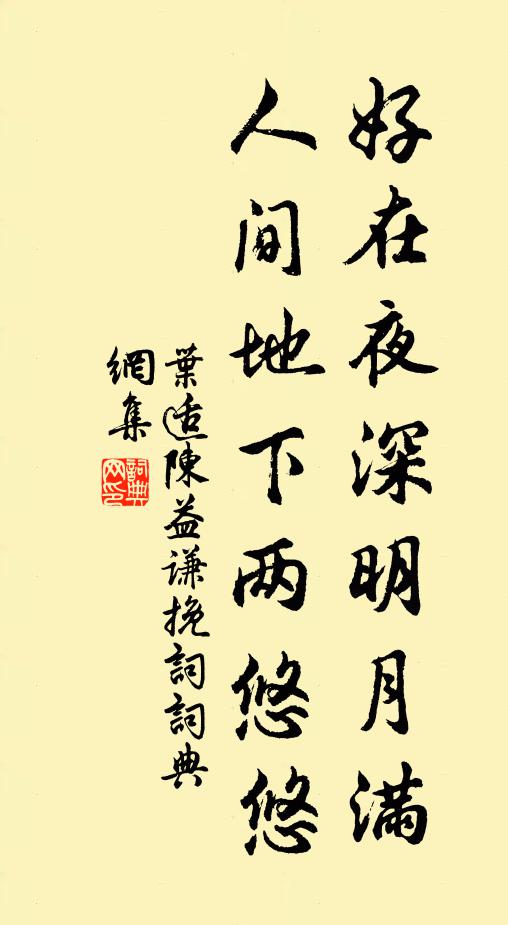 好在夜深明月满
人间地下两悠悠
葉适陳益谦挽詞詞典
網集
詞典网印